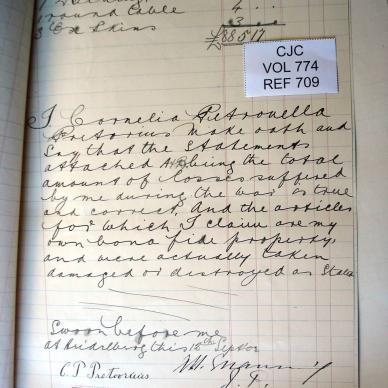 round Cable 4 "
3 Ox Skins 3
£88517
CJC
VOL 774
REF 709
I Cornelia Petronella
Pretorius make oath and
say that the statements
attached A & B being the total
amount of losses suffered
by me during the war is true
and correct, and the articles
for which I claim are my
own bona fide property,
and were actually taken
damaged or destroyed as State
Sworn before me
at Heidelberg this 18th Septbr
C. P. Pretorius
J.P.